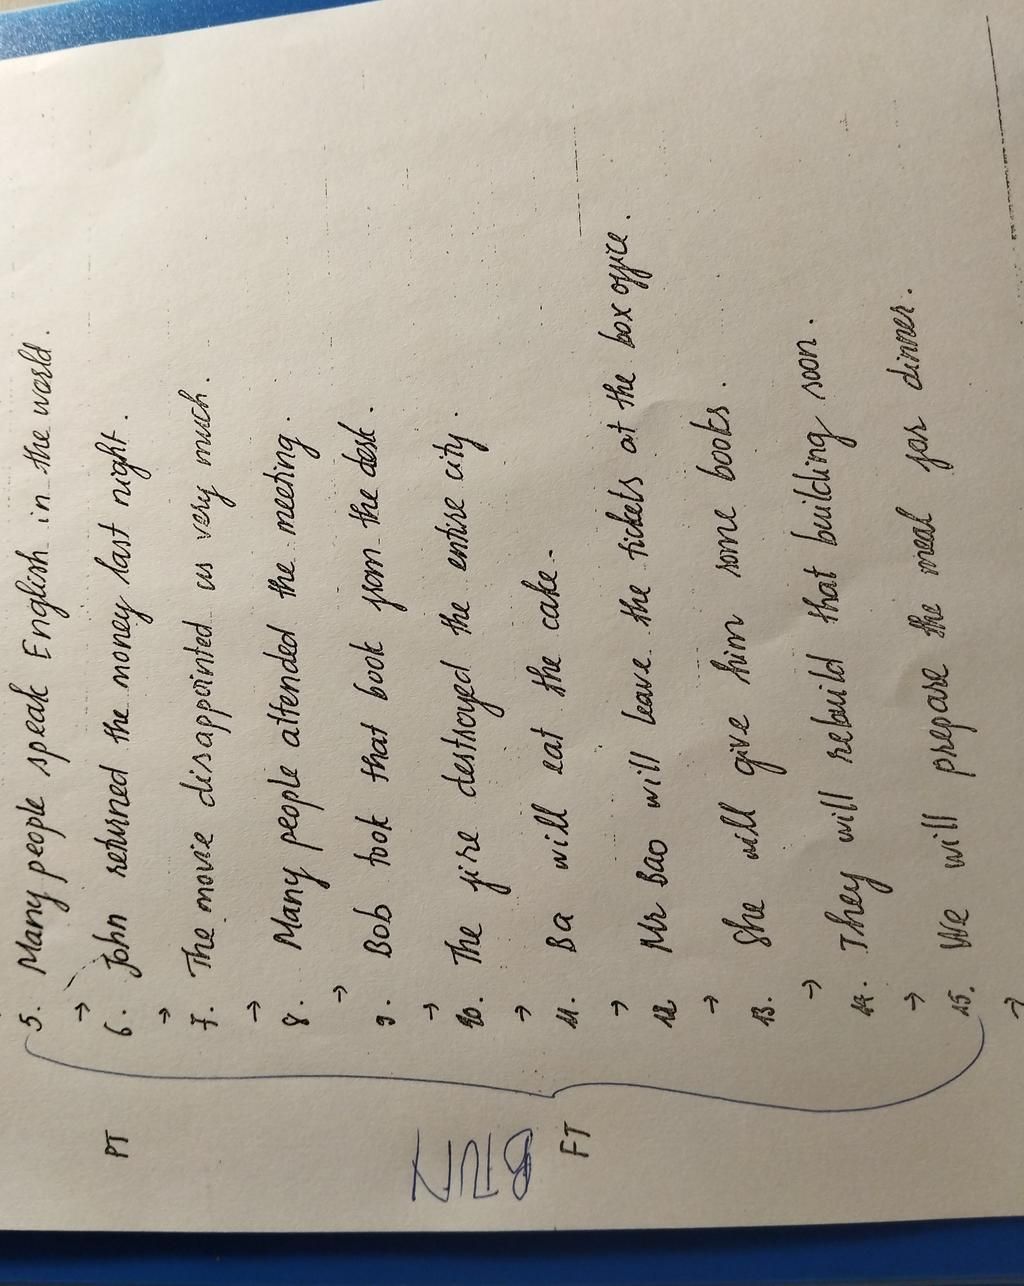 5. Many people speak English in the world.
→
PT 6. John returned the money last night.
→
7. The movie disappointed us very much.
→
8. Many people attended the meeting.
→
9. Bob took that book from the desk.
→
10. The fire destroyed the entire city.
→
FT 11. Ba will eat the cake.
→
12. Mr Bao will leave the tickets at the box office.
→
13. She will give him some books.
→
14. They will rebuild that building soon.
→
15. We will prepare the meal for dinner.
→